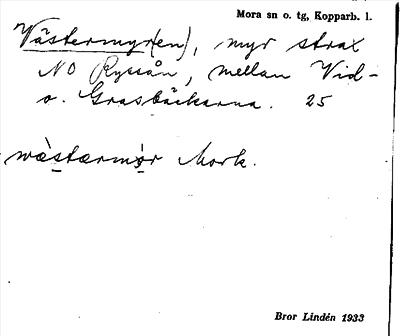 Mora sn o. tg, Kopparb. l.
Västermyr(en), myr strax
NO Ryssån, mellan Vid-
o. Grasbäckarna. 25
wæ̀stærmỳr Mork.
Bror Lindén 1933